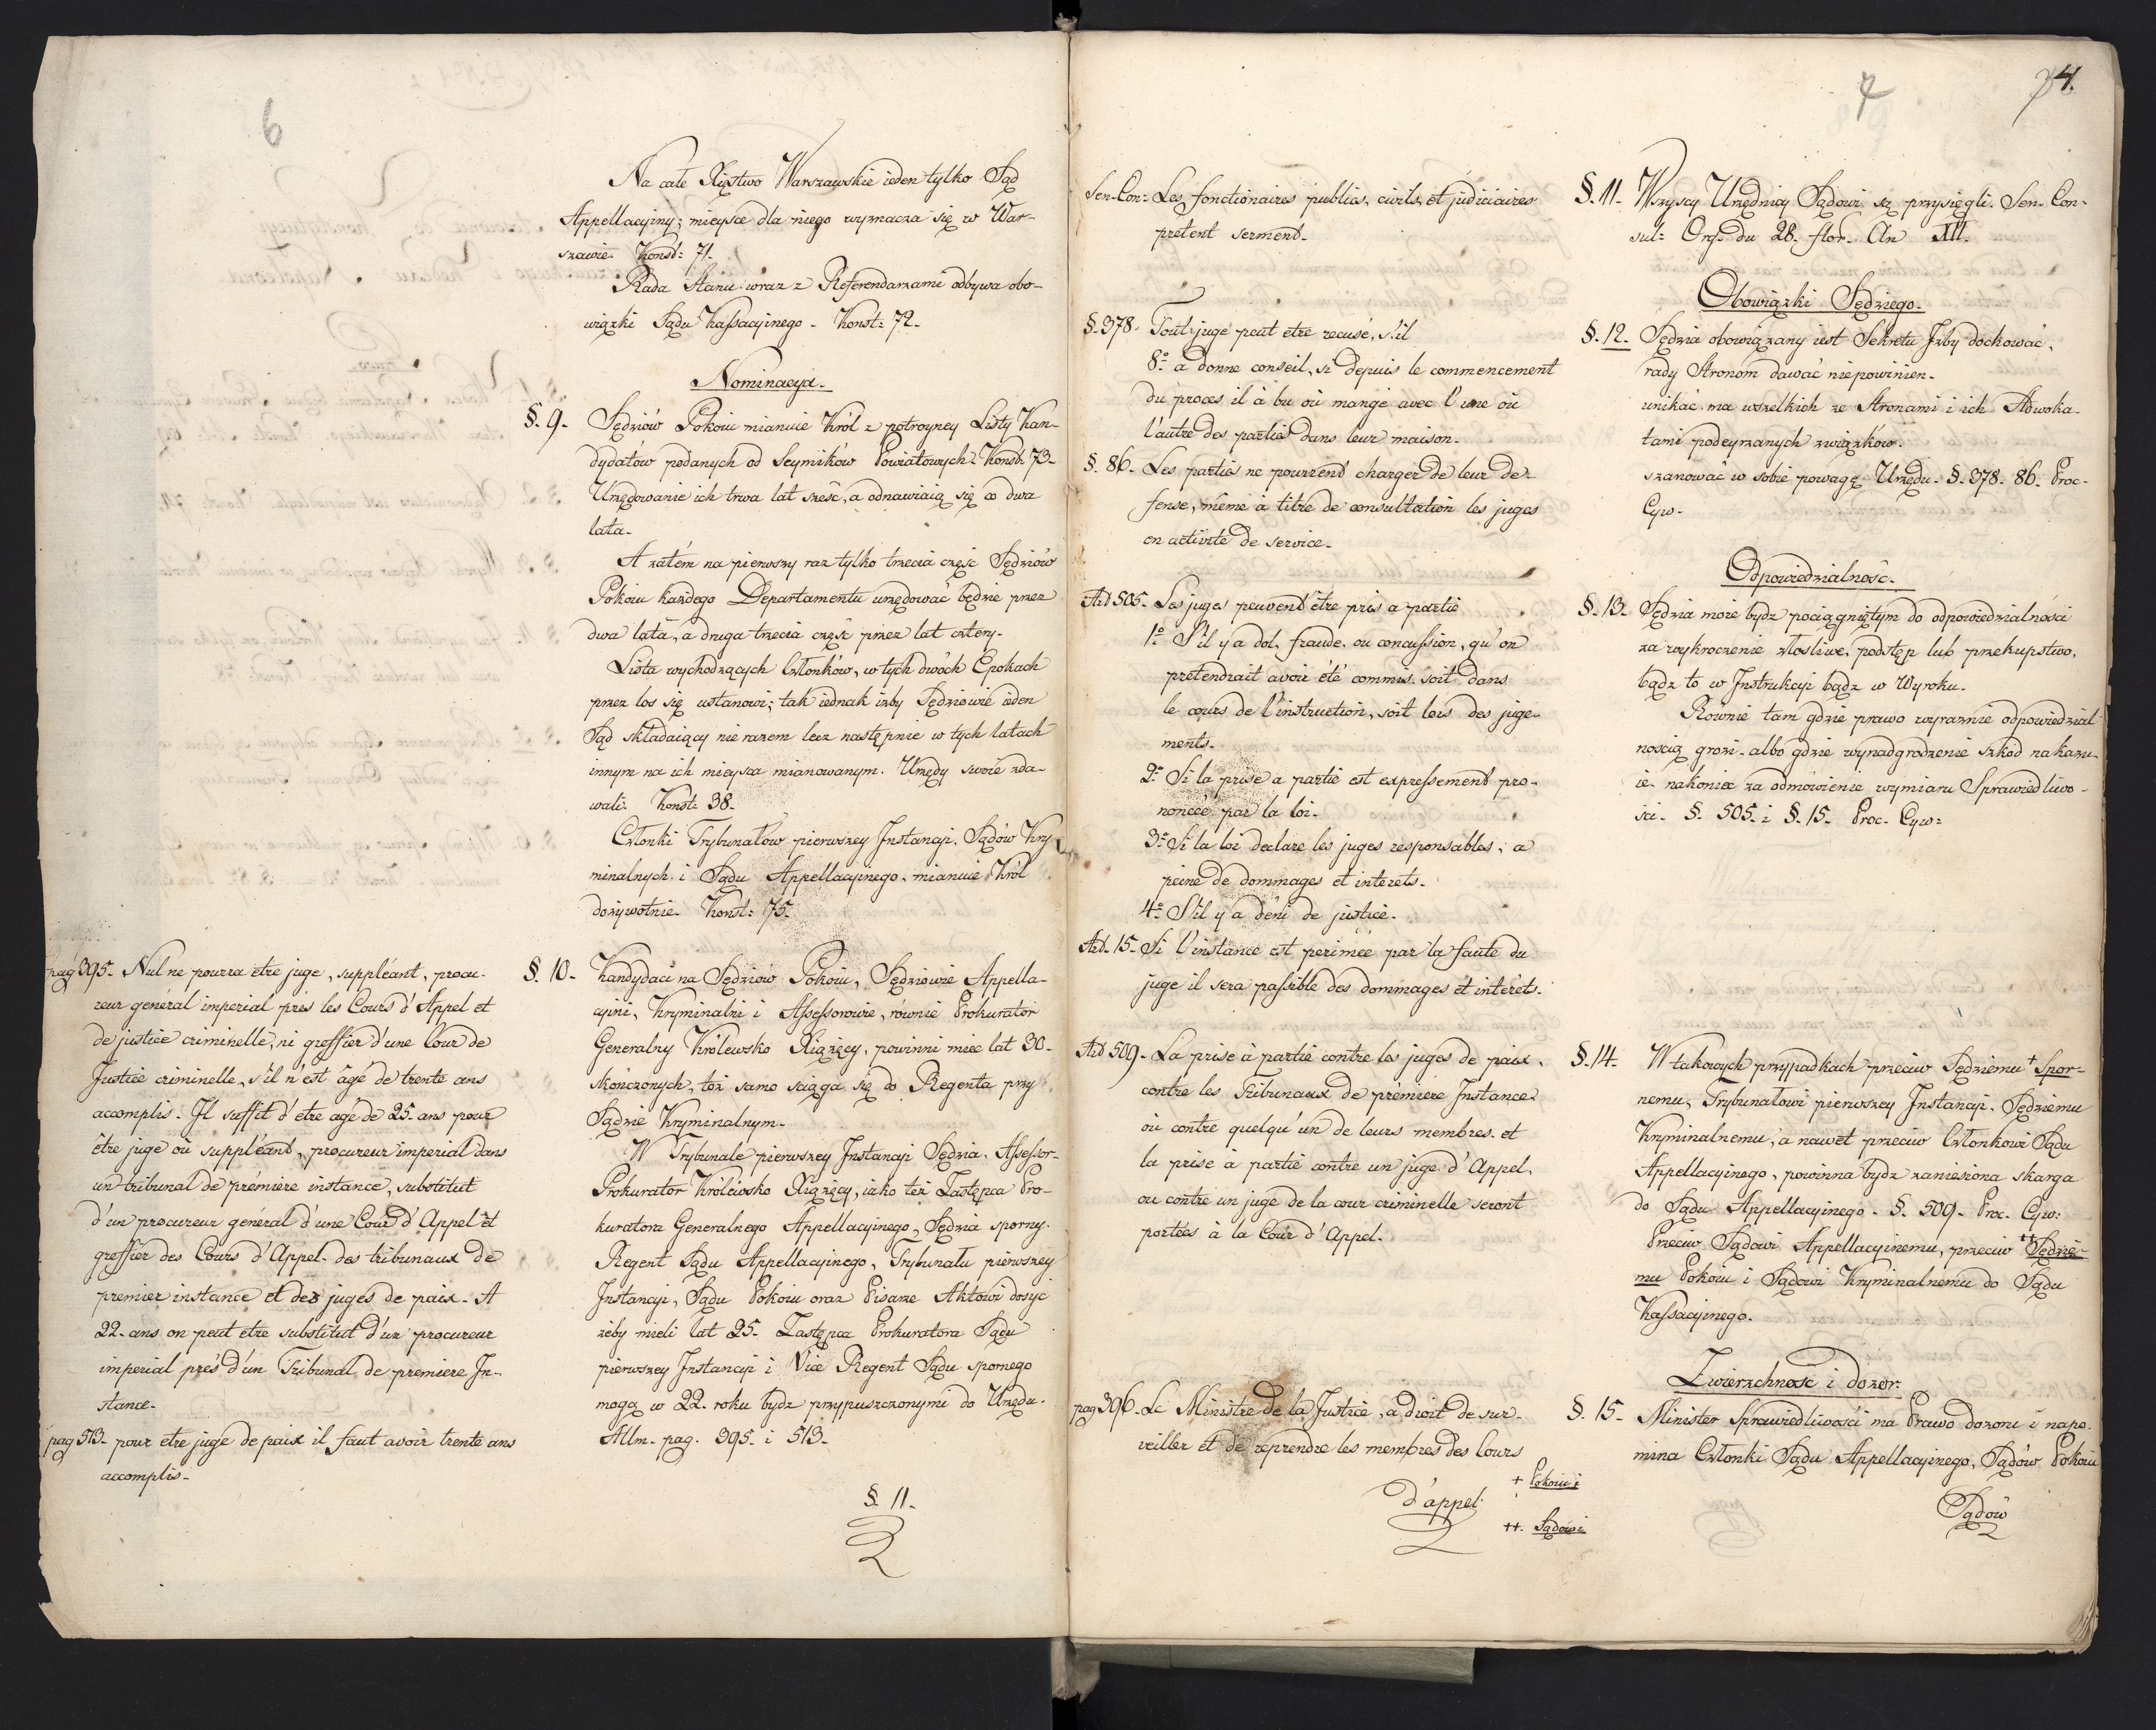 6
Na całe Xięstwo Warszawskie ieden tylko Sąd
Appellacyiny; mieysce dla niego wyznacza się w War-
szawie. Konst: 71.
Rada Stanu wraz z Referendarzami odbywa obo-
wiązki Sądu Kassacyinego. Konst: 72.
Nominacyia.
§. 9. Sędziów Pokoiu mianuie Król z potroyney Listy Kan-
dydatów podanych od Seymików Powiatowych. Konst: 73.
Urzędowanie ich trwa lat sześć, a odnawiaią się co dwa
lata.
A zatém na pierwszy raz tylko trzecia częśc Sędziów
Pokoiu każdego Departamentu urzędować będzie przez
dwa lata, a druga trzecia część przez lat cztery.
Lista wychodzących Członków, w tych dwóch Epokach
przez los się ustanowi; tak iednak izby Sędziowie ieden
Sąd składaiący nie razem lecz następnie w tych latach
innym na ich mieysca mianowanym. Urzędy swoie zda-
wali. Konst: 38.
Członki Trybunałów pierwszey Instancyi. Sądów Kry
minalnych i Sądu Appellacyinego. mianuie Król
dożywotnie. Konst: 75.
pag 395. Nul ne pourra etre juge, suppléant, procu-
reur genéral imperial près les Cours d'Appel et
de justice criminelle, ni greffier d'une Cour de
Justice criminelle, s'il n'est âgé de trente ans
accomplis. Il suffit d'etre agé de 25. ans pour
être juge où suppléant, procureur imperial dans
un tribunal de prémiere instance, substitut
d'un procureur général d'une Cour d'Appel et
greffier des Cours d'Appel. des tribunaux de
premier instance et des juges de paix. A
22. ans on peut etre substitut d'un procureur
imperial près d'un Tribunal de premiere In-
stance.
pag 513. pour etre juge de paix il faut avoir trente ans
accomplis.
§. 10. Kandydaci na Sędziów Pokoiu, Sędziowie Appella-
cyini, Kryminalni i Assessorowie, równie Prokurator
Generalny Królewsko Xiążęcy, powinni mieć lat 30.
skończonych, toż samo sciąga się do Regenta przy
Sądzie Kryminalnym.
W Trybunale pierwszey Instancyi Sędzia. Assessor.
Prokurator Królewsko Xiążęcy, iako też Zastępca Pro-
kuratora Generalnego Appellacyinego, Sędzia sporny.
Regent Sądu Appellacyinego, Trybunału pierwszey
Instancyi, Sądu Pokoiu oraz Pisarze Aktowi dosyc
żeby mieli lat 25. Zastępca Prokuratora Sądu
pierwszey Instancyi i Vice Regent Sądu spornego
mogą w 22. roku bydz przypuszczonymi do Urzędu.
Allm. pag. 395. i 513.
§. 11.
7
4.
Sen. Con: Les fonctionaires publics, civils, et judiciaires
pretent serment.
§. 378. Tout juge peut etre recusé, s'il
8º a donne conseil, si depuis le commencement
du proces il à bu où mangé avec l'une où
l'autre des parties dans leur maison.
§. 86. Les parties ne pourrent charger de leur de-
fense, même à titre de consultation les juges
en activite de service.
Art 505. Les juges peuvent être pris a partie
1º S'il y a dol, fraude, ou concussion, qu'on
pretendrait avoir été commis. soit dans
le cours de l'instruction, soit lors des juge-
ments.
2º Si la prise a partie est expressement pro-
noncée par la loi.
3º Si la loi declare les juges responsables, a
peine de dommages et interets.
4º S'il y a déni de justice.
Art. 15. Si l'instance est perimée par la faute du
juge il sera passible des dommages et intérets.
Art 509. La prise à partie contre les juges de paix,
contre les Tribunaux de prémiere Instance
où contre quelqu'un de leurs membres. et
la prise à partie contre un juge d'Appel,
ou contre un juge de la cour criminelle seront
portées à la Cour d'Appel.
pag 396. Le Ministre de la Justice, a droit de sur-
veiller et de reprendre les membres des Cours
d'appel
+ Pokoiu i
++. Sądowi
§. 11. Wszyscy Urzędnicy Sądowi są przysięgli. Sen. Con-
sul: Org. du 28. flor. An XII.
Obowiązki Sędziego.
§. 12. Sędzia obowiązany iest Sekretu Izby dochować,
rady Stronom dawać niepowinien.
unikać ma wszelkich ze Stronami i ich Adwoka-
tami podeyrzanych związków.
szanować w sobie powagę Urzędu. §. 378. 86. Proc.
Cyw.
Odpowiedzialność.
§. 13. Sędzia może bydz pociągniętym do odpowiedzialności
za wykroczenie złosliwe, podstęp lub przekupstwo,
bądz to w Instrukcyi bądz w Wyroku.
Równie tam gdzie prawo wyraznie odpowiedzial
nością grozi. albo gdzie wynadgrodzenie szkod nakazu-
ie. nakoniec za odmówienie wymiaru Sprawiedliwo-
ści. §. 505. i §. 15. Proc. Cyw:
§. 14. W takowych przypadkach przeciw Sędziemu + Spor-
nemu, Trybunałowi pierwszey Instancyi. Sędziemu
Kryminalnemu, a nawet przeciw Członkowi Sądu
Appellacyinego, powinna bydz zaniesiona skarga
do Sądu Appellacyinego. §. 509. Proc. Cyw:
Przeciw Sądowi Appellacyinemu, przeciw ++ Sędzie-
mu Pokoiu i Sądowi Kryminalnemu do Sądu
Kassacyinego.
Zwierzchność i dozór.
§. 15. Minister Sprawiedliwości ma Prawo dozoru i napo-
mina Członki Sądu Appellacyinego, Sądów Pokoiu
Sądów